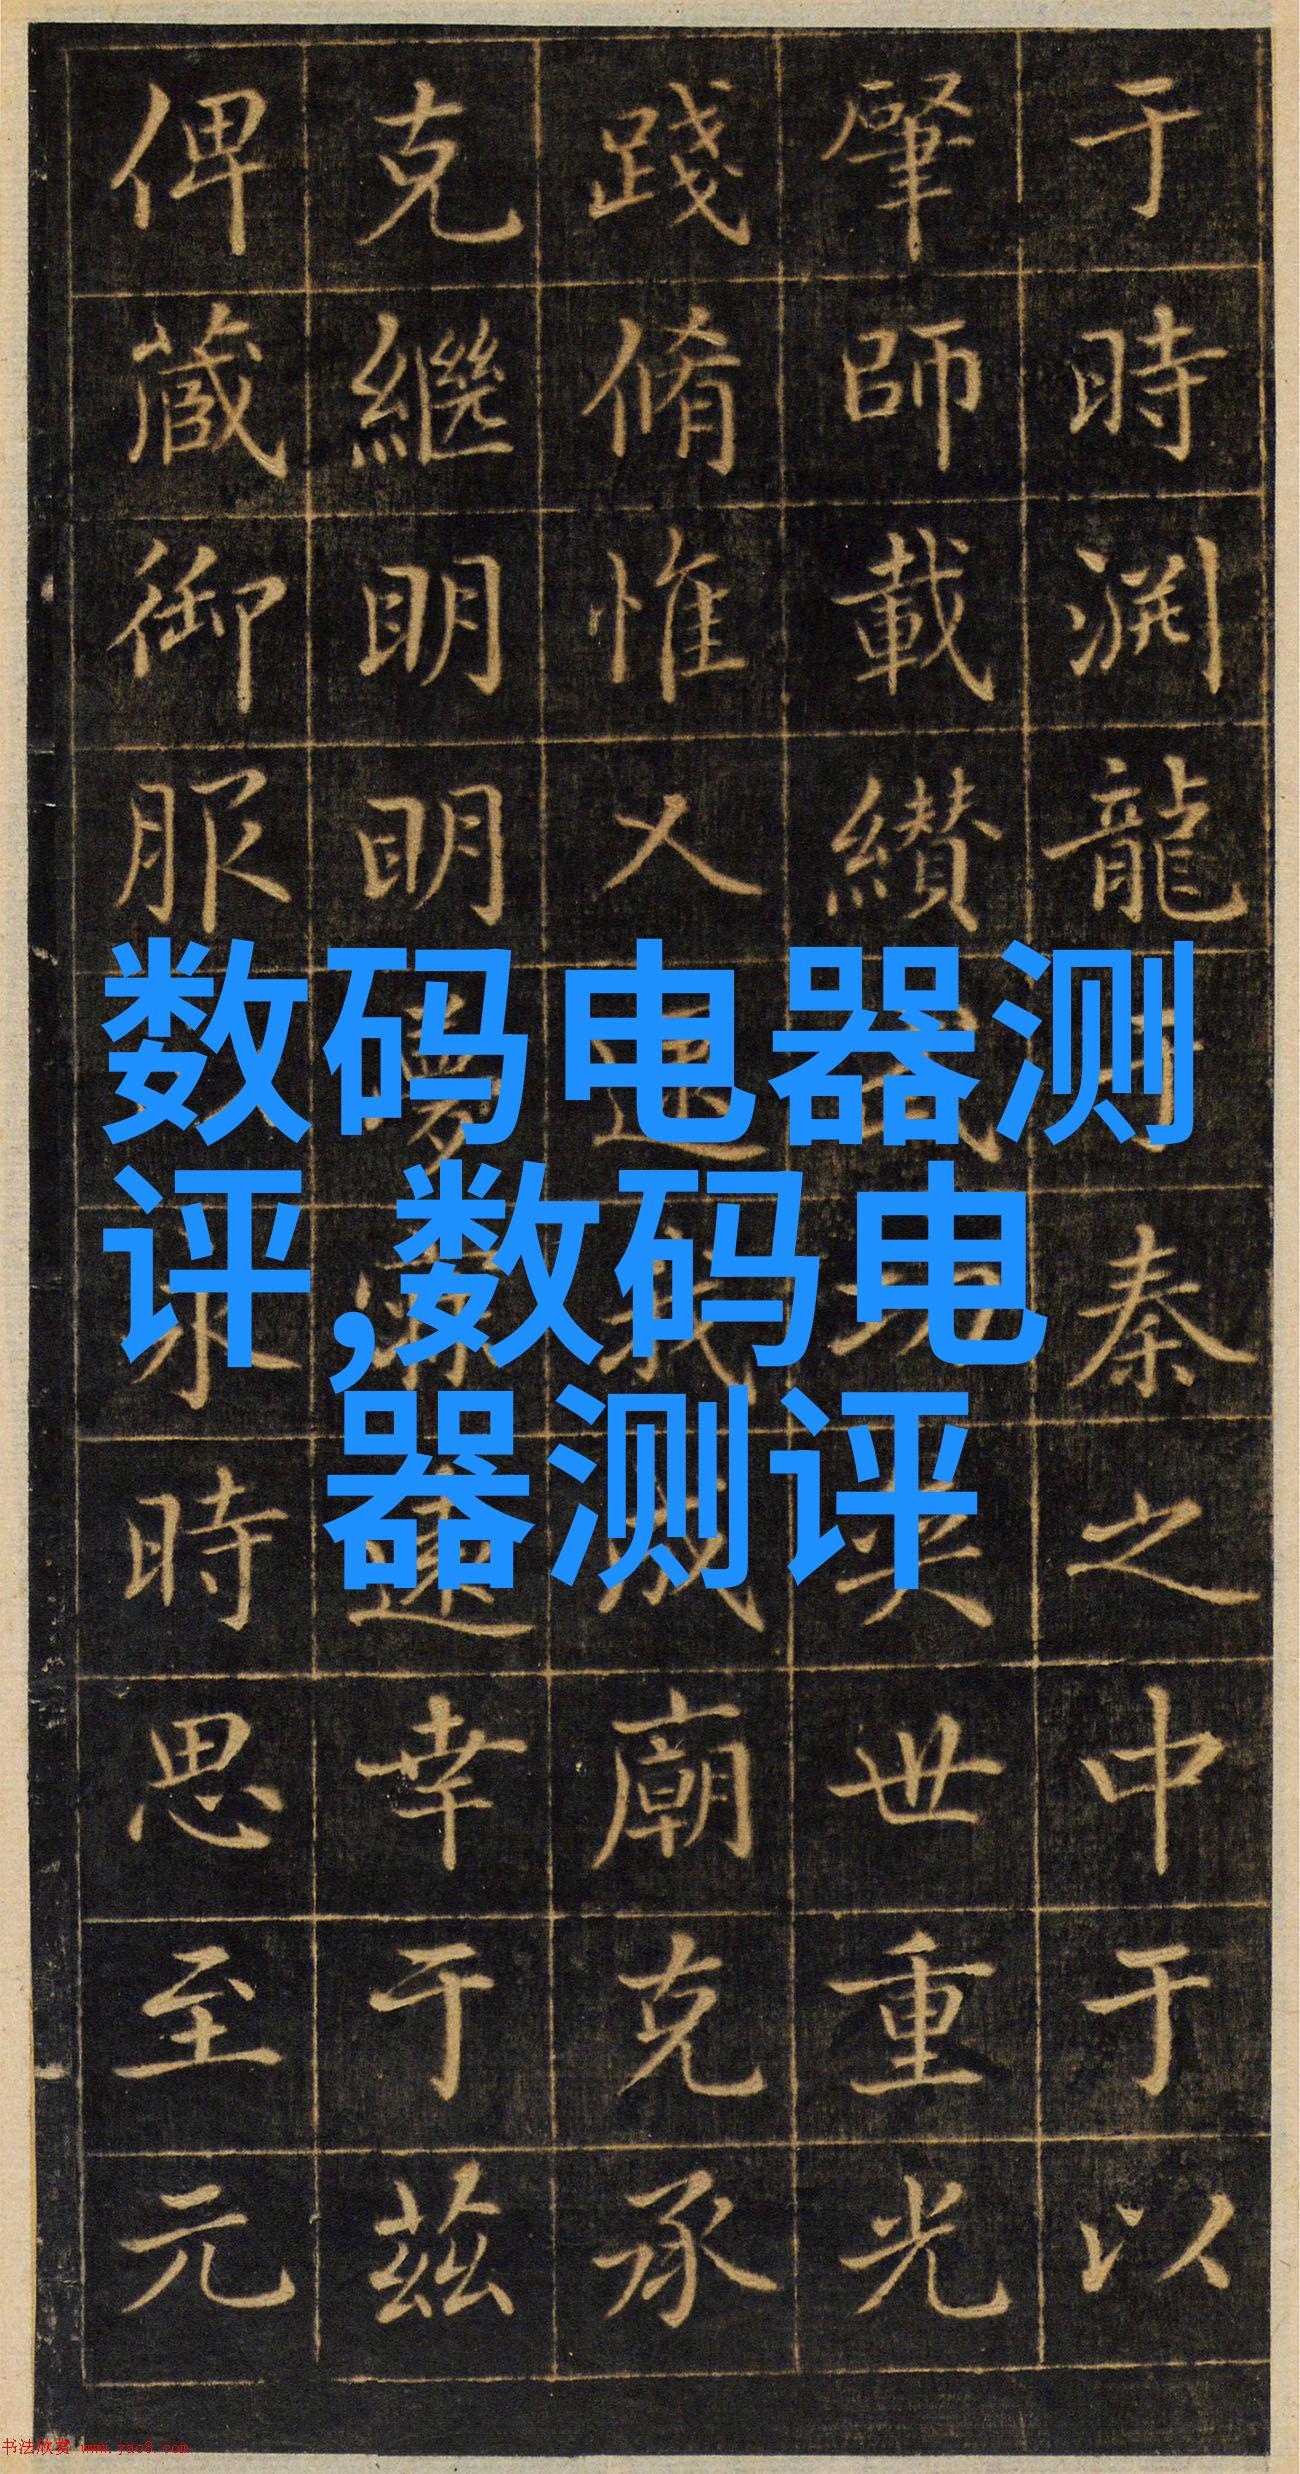 于時渕龍秦之中于以
肇師載纘世重光
踐脩惟乂我成廟克承
克繼明明幸于茲
俾蕆御服永時思至元
数码电器测
评,数码电
器测评
书法欣赏 www.yac8.com